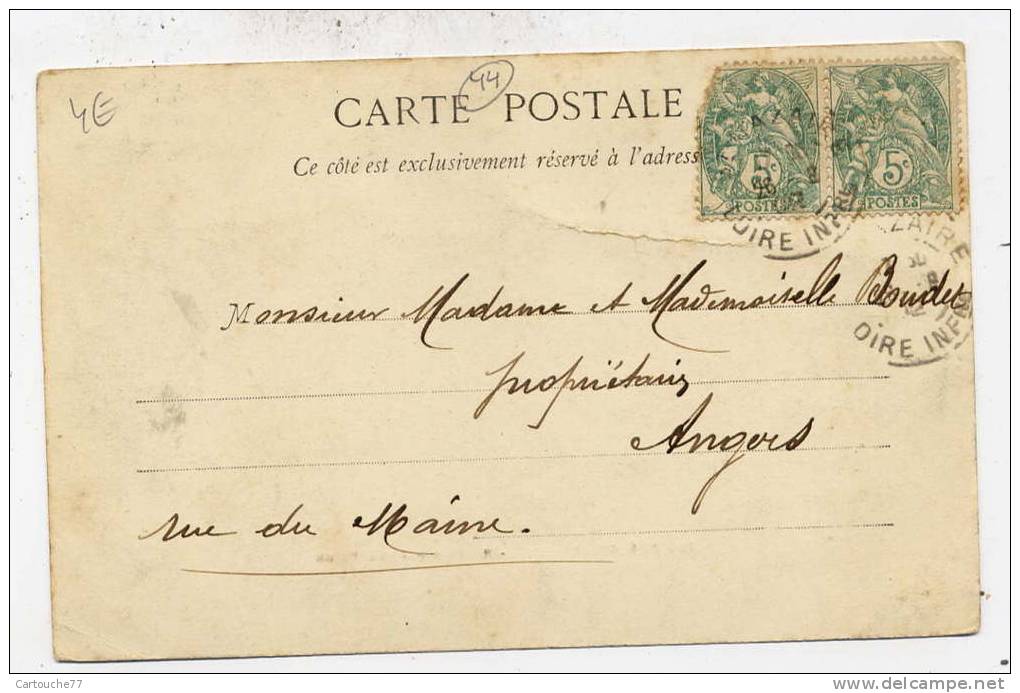 4E
44
CARTE POSTALE
Ce côté est exclusivement réservé à l'adress
5c 5c
POSTES POSTES
LOIRE INFRE
ZAIRE
OIRE INFRE
Monsieur Madame et Mademoiselle Boudet
propriétaires
Angers
rue du Maine.
Cartouche77
www.delcampe.net